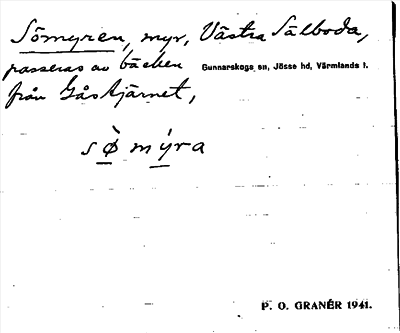 Sömyren, myr, Västra Sälboda,
passeras av bäcken Gunnarskogs sn, Jösse hd, Värmlands l.
från Gåstjärnet,
sø̀ mýra
P. O. GRANÉR 1941.